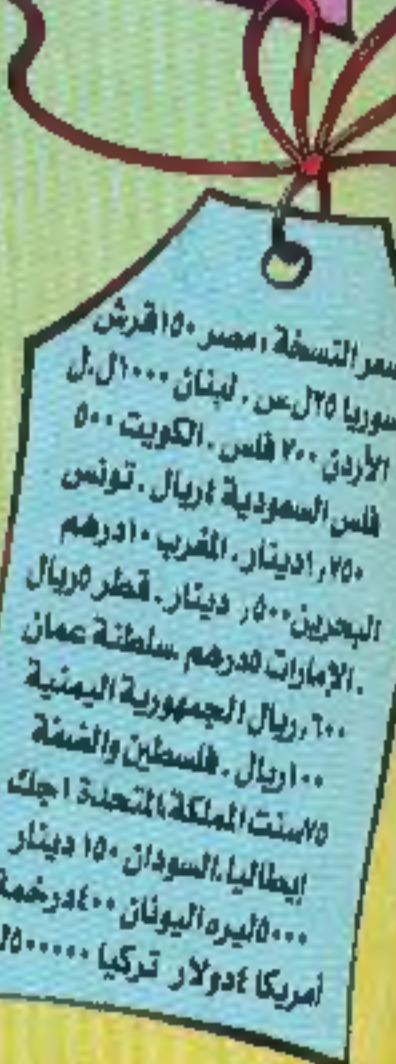 سعر النسخة : مصر ١٥٠ قرش
سوريا ٢٥ ل.س . لبنان ١٠٠٠ ل.ل
الأردن ٧٠٠ فلس . الكويت ٥٠٠
فلس السعودية ٤ ريال . تونس
١,٧٥٠ دينار . المغرب ١٠ درهم
البحرين ٥٠٠, دينار . قطر ٥ ريال
. الإمارات ٥ درهم . سلطنة عمان
٦٠٠, ريال الجمهورية اليمنية
١٠٠ ريال . فلسطين والضفة
٧٥ سنت المملكة المتحدة ١ جك
إيطاليا . السودان ١٥٠ دينار
٥٠٠٠ ليره اليونان ٤٠٠ درخمة
أمريكا ٤ دولار تركيا